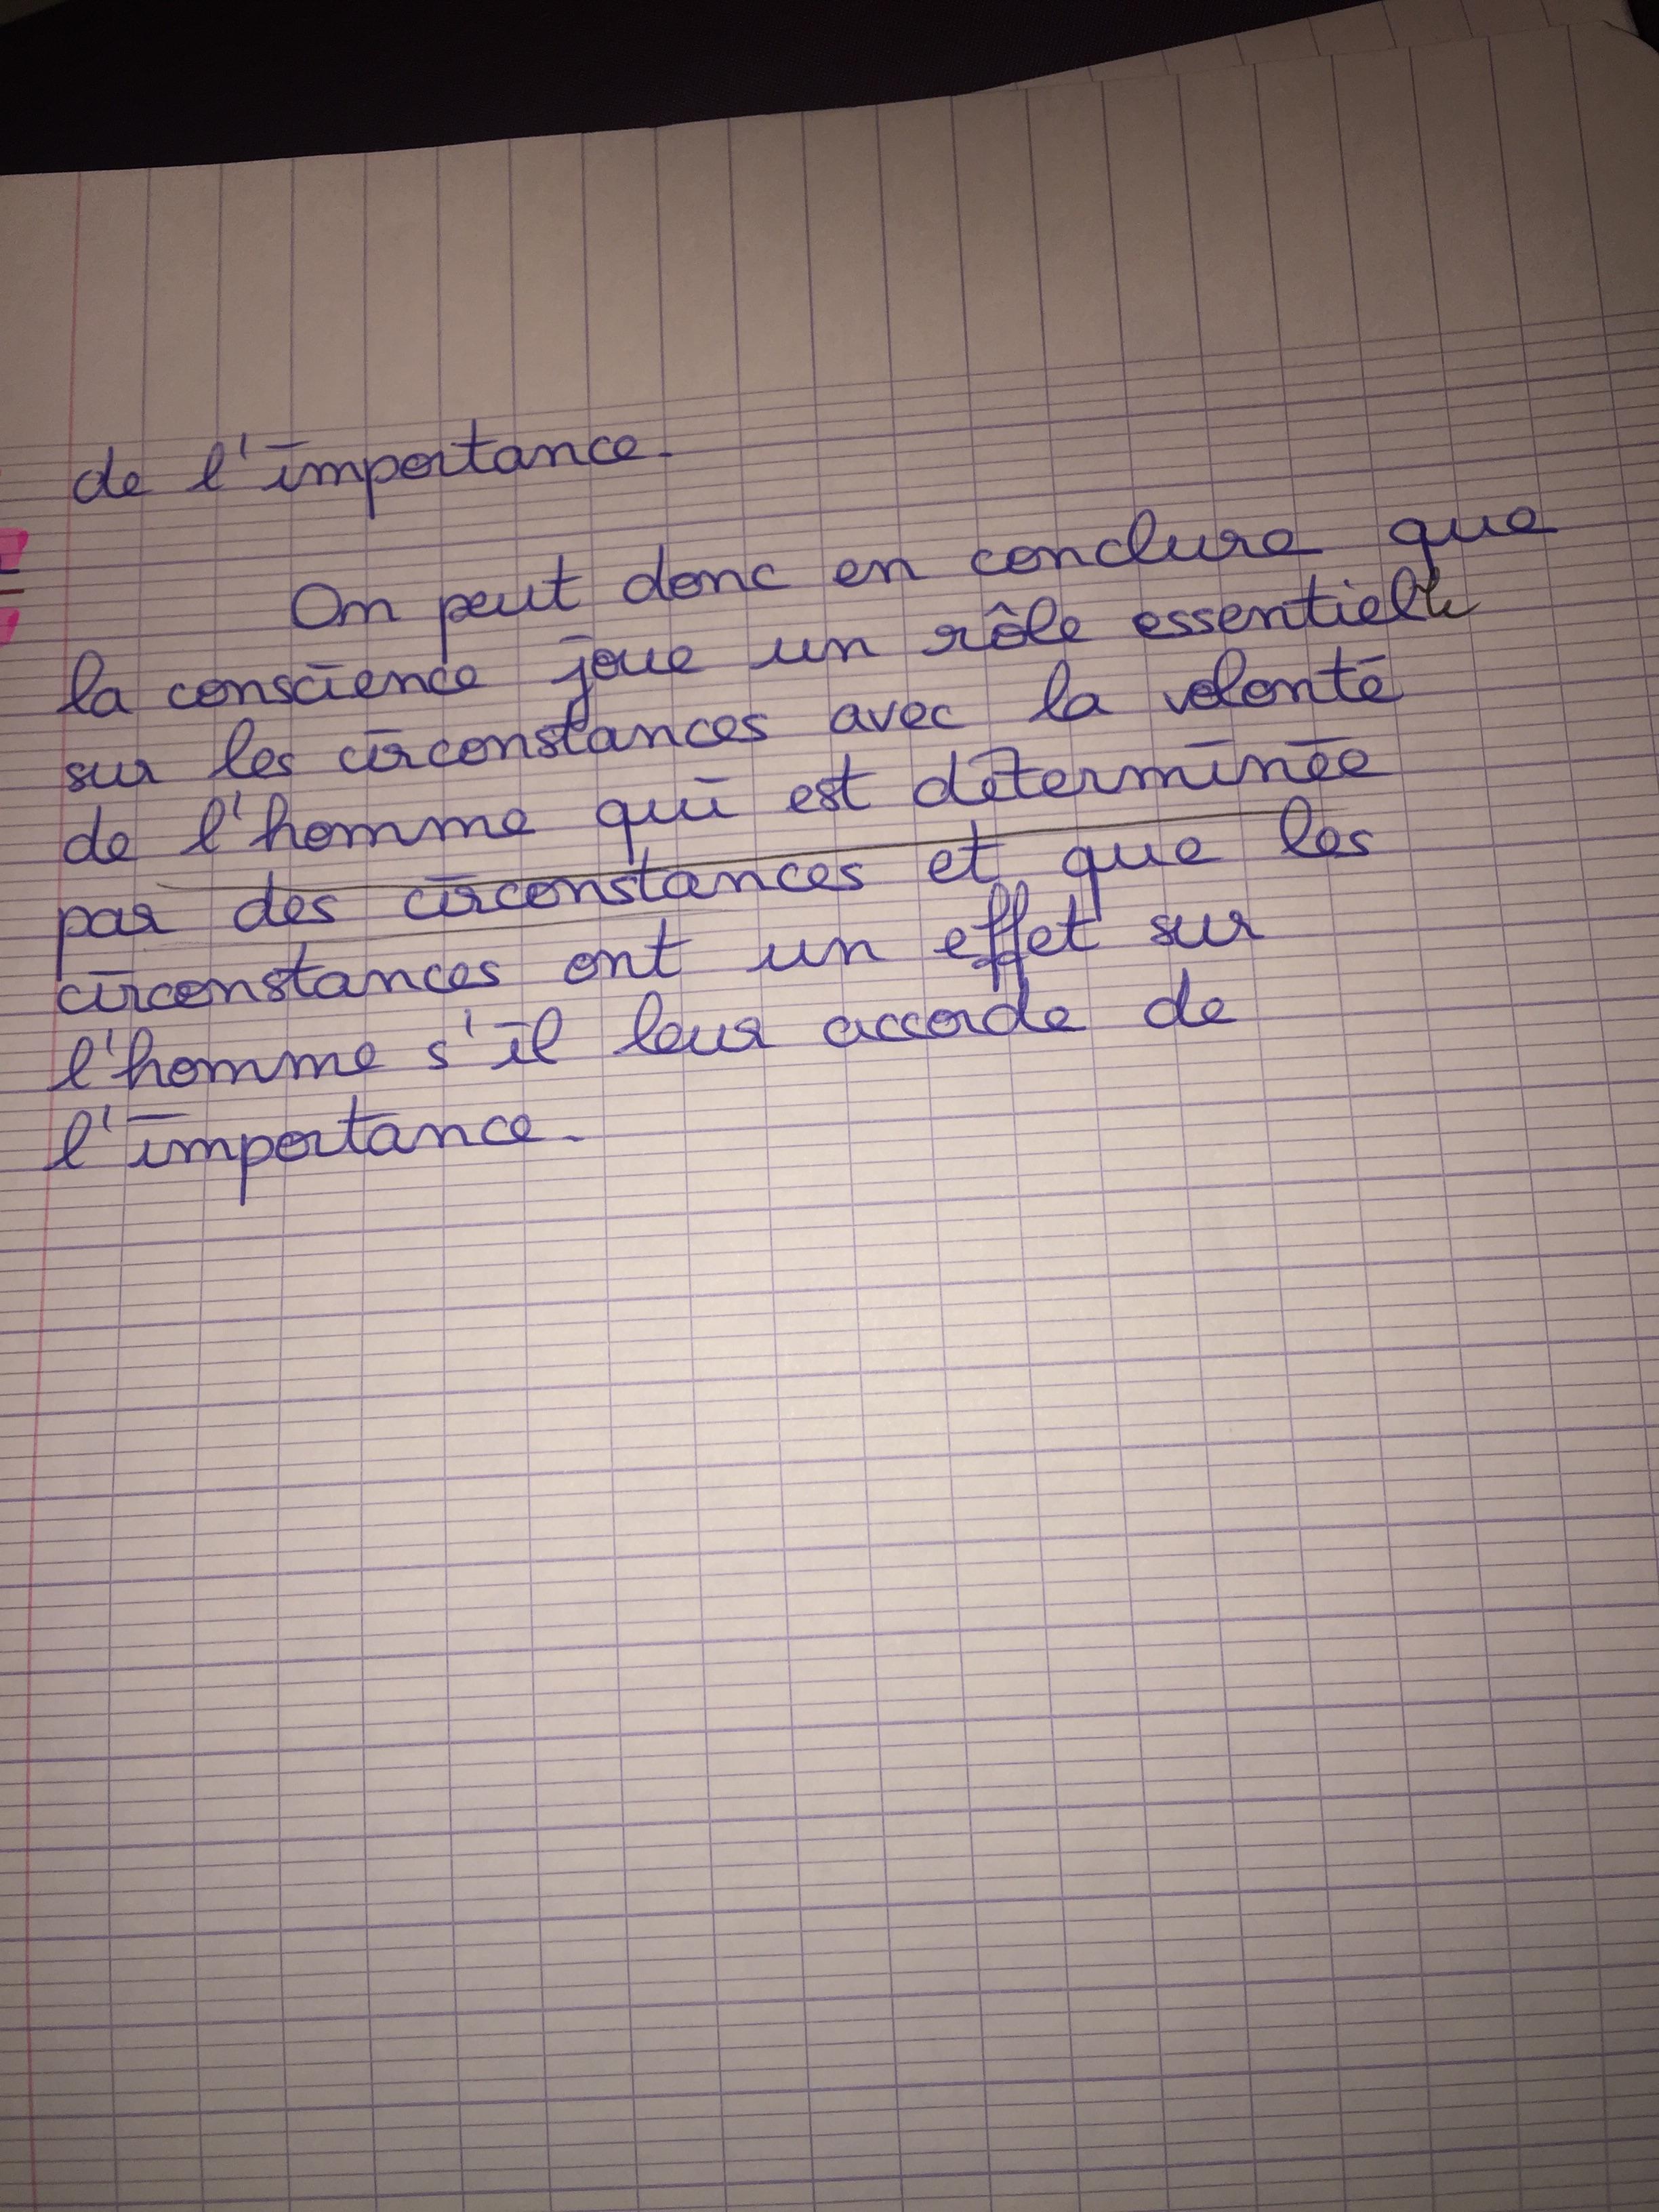 de l'importance.
On peut donc en conclure que
la conscience joue un rôle essentiel
sur les circonstances avec la volonté
de l'homme qui est déterminée
par des circonstances et que les
circonstances ont un effet sur
l'homme s'il leur accorde de
l'importance.